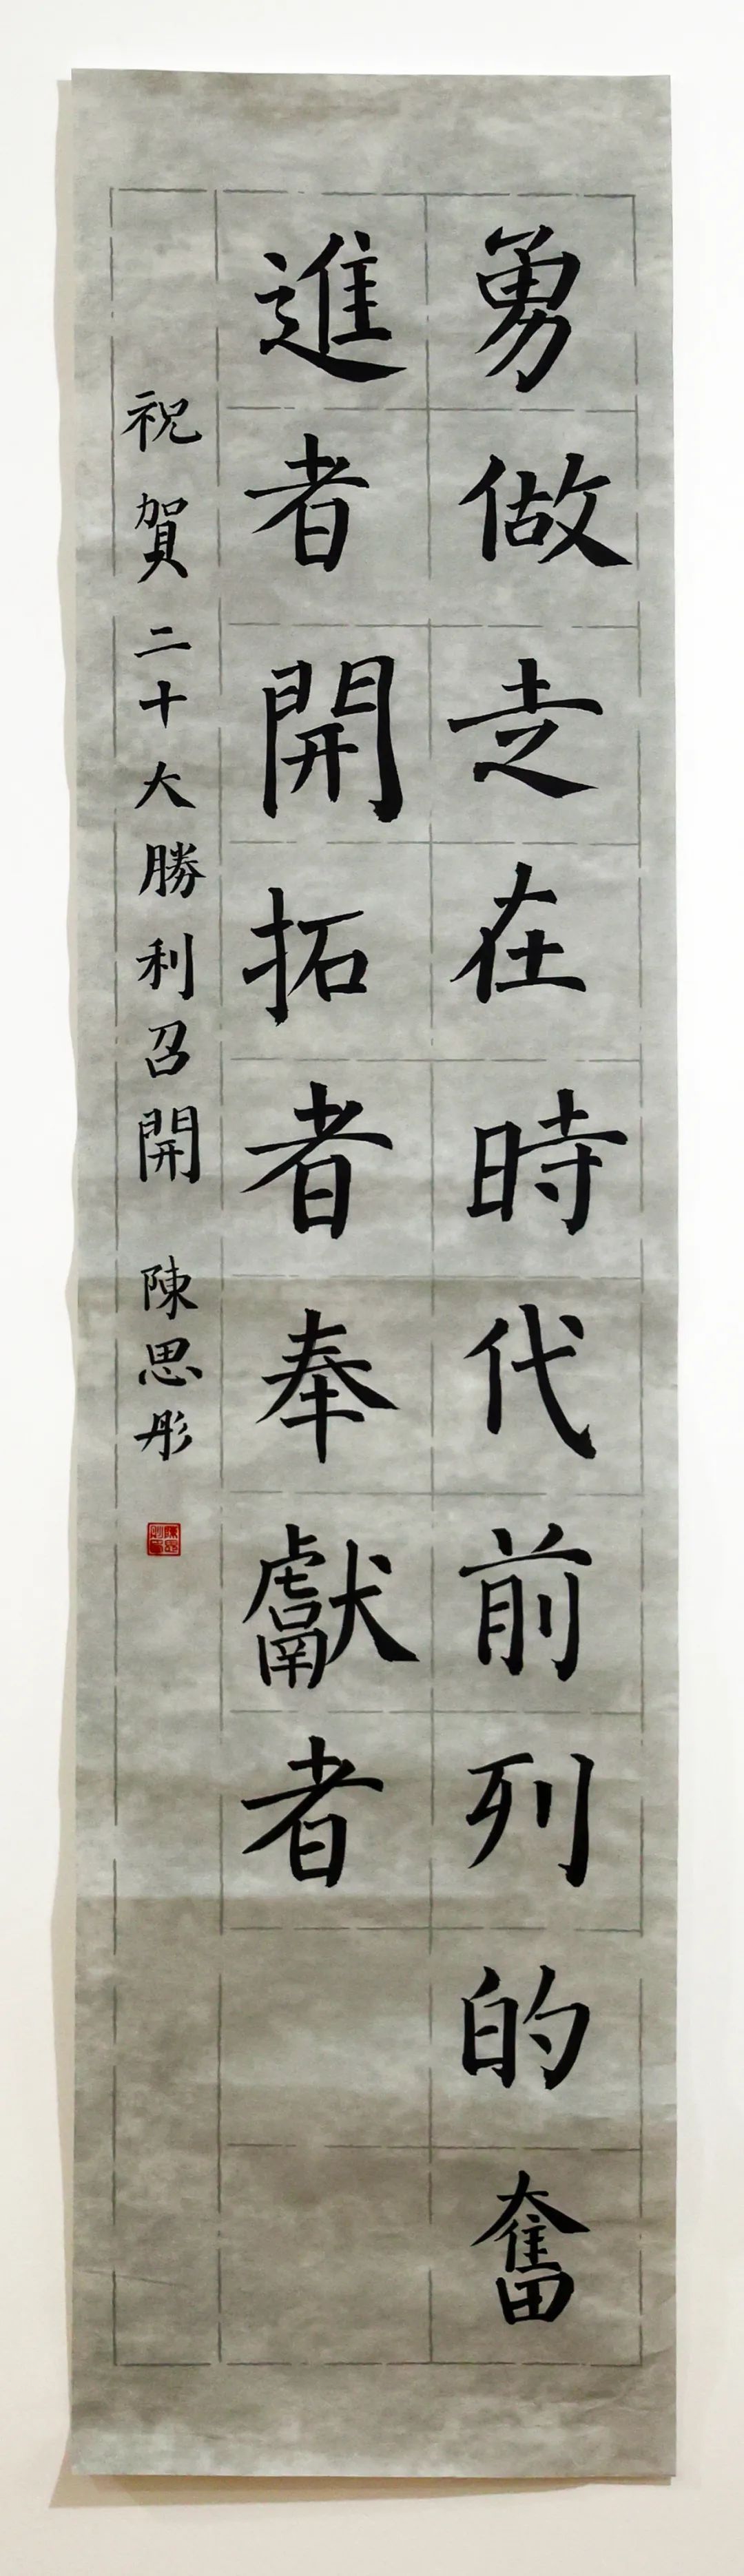 勇做走在時代前列的奮
進者開拓者奉獻者
祝賀二十大勝利召開 陳思彤